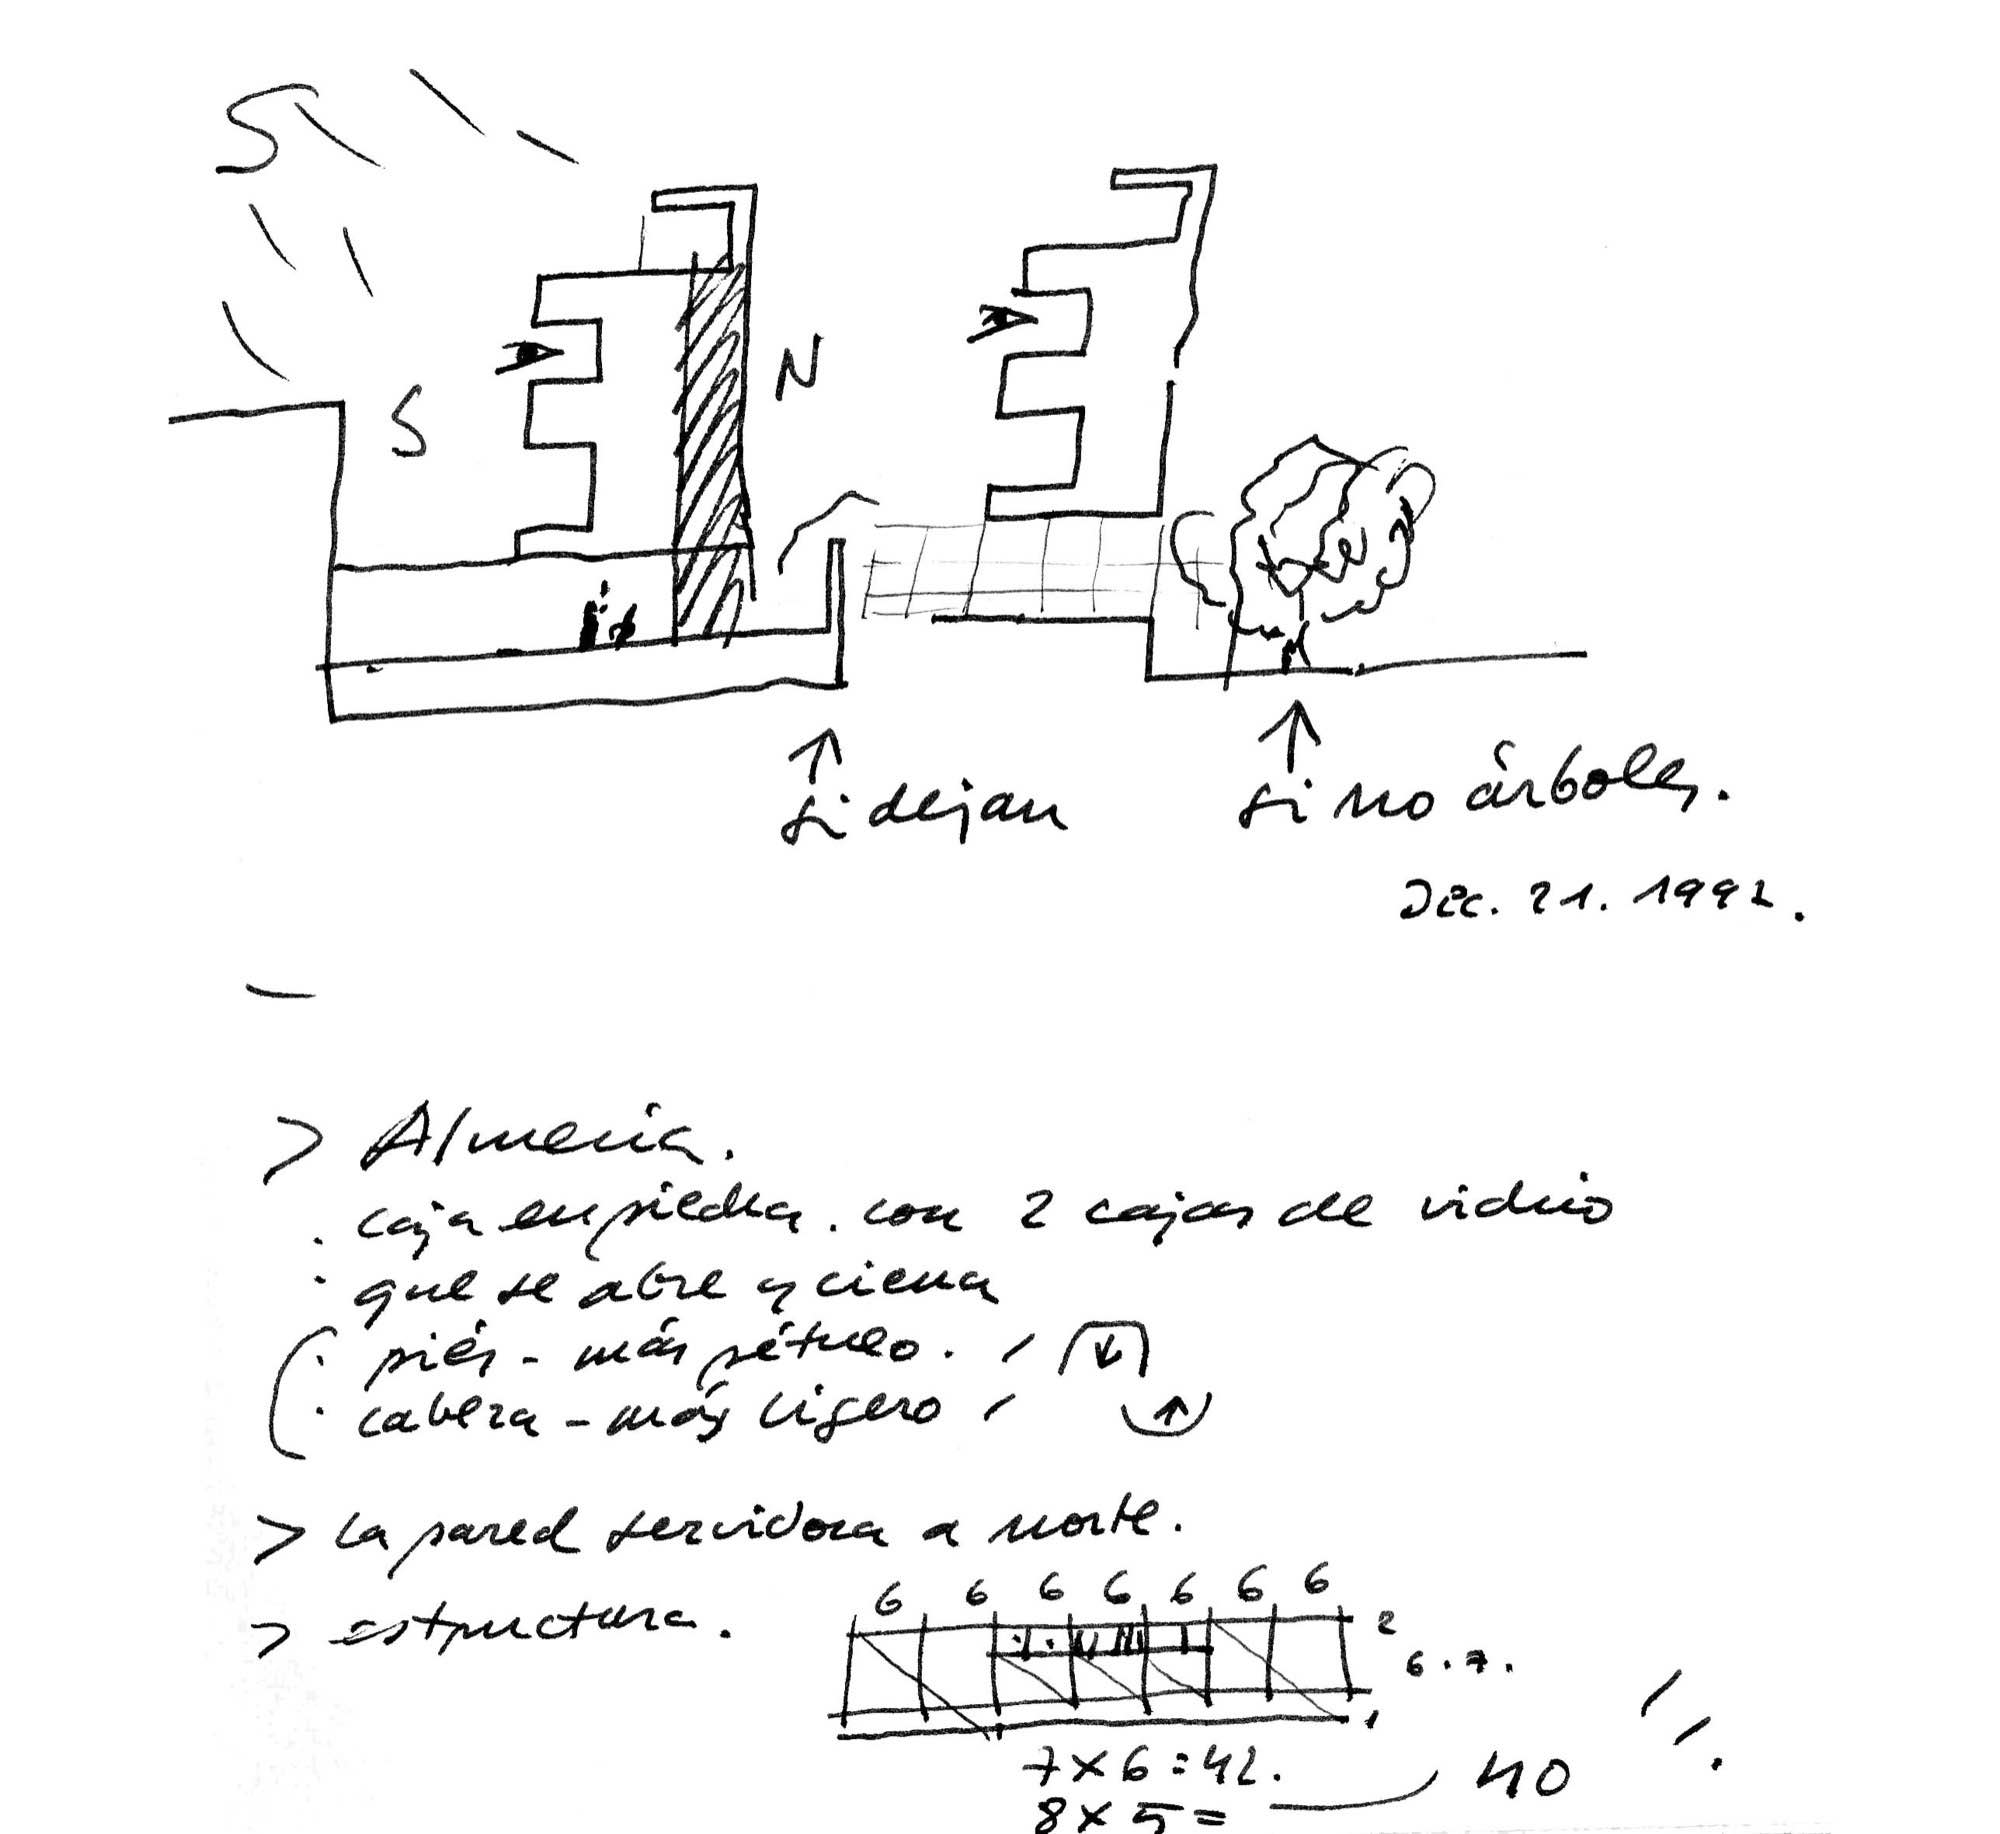 S
S
N
si dejan
si no árboles.
Dec. 21. 1992.
> Almería.
. caja en piedra. con 2 cajas de vidrio
: que se abre y cierra
: piés - más pétreo.
: cabeza - más ligero
> la pared servidora a norte.
> estructura.
6 6 6 6 6 6 6
2
6.7.
1
7x6=42.
8x5= 40